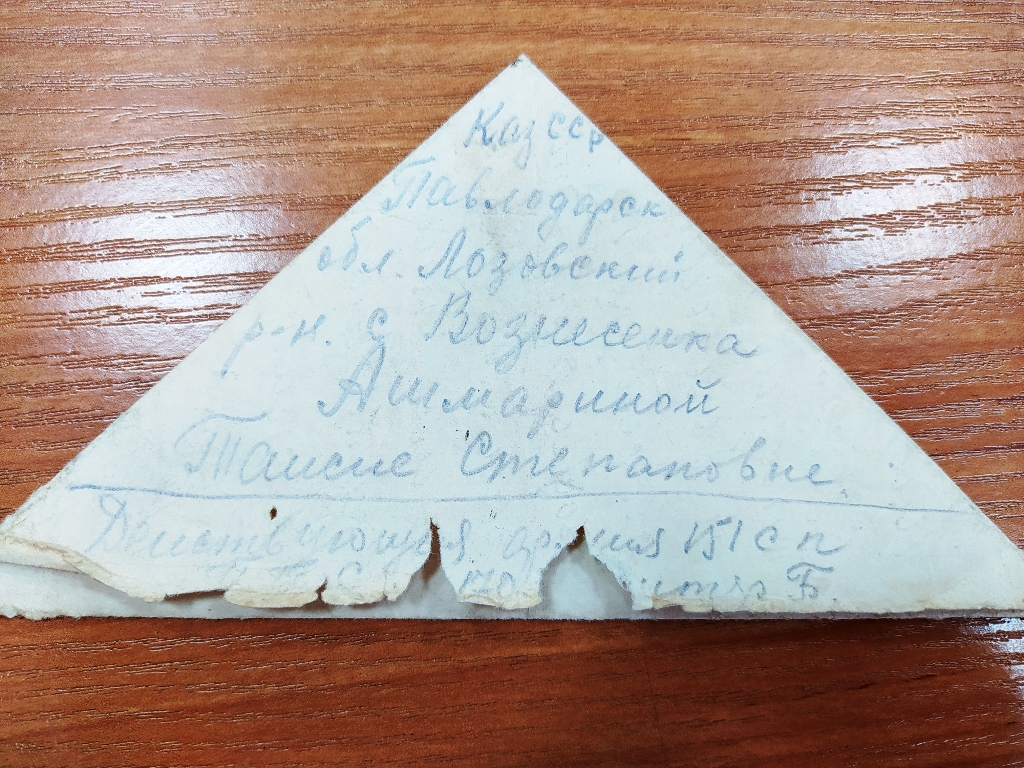 Каз ССР
Павлодарск
обл. Лозовский
р-н. с Вознесенка
Ашмариной
Таисие Степановне.
Действующая армия 151 с п
Б.